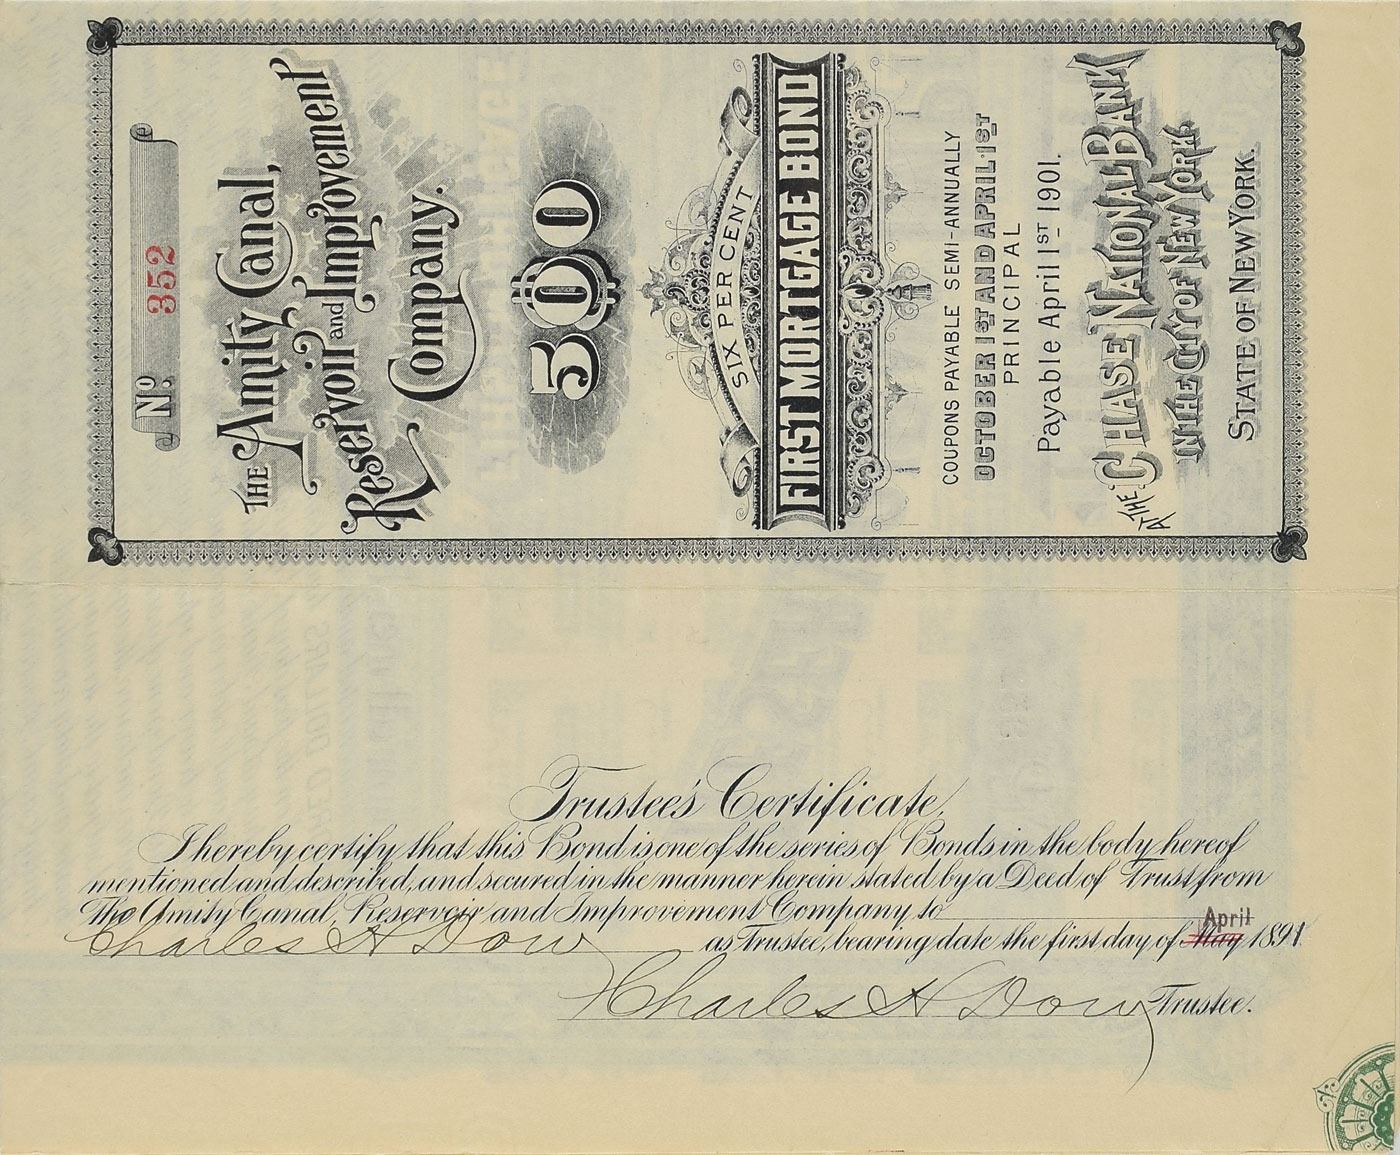 No. 352
THE Amity Canal,
Reservoir and Improvement
Company.
$500
SIX PER CENT
FIRST MORTGAGE BOND
COUPONS PAYABLE SEMI-ANNUALLY
OCTOBER 1ST AND APRIL 1ST
PRINCIPAL
Payable April 1ST 1901.
AT THE CHASE NATIONAL BANK
IN THE CITY OF NEW YORK.
STATE OF NEW YORK.
Trustee's Certificate.
I hereby certify that this Bond is one of the series of Bonds in the body hereof
mentioned and described, and secured in the manner herein stated by a Deed of Trust from
The Amity Canal, Reservoir and Improvement Company to
Charles H Dow as Trustee, bearing date the first day of May April 1891.
Charles H Dow Trustee.